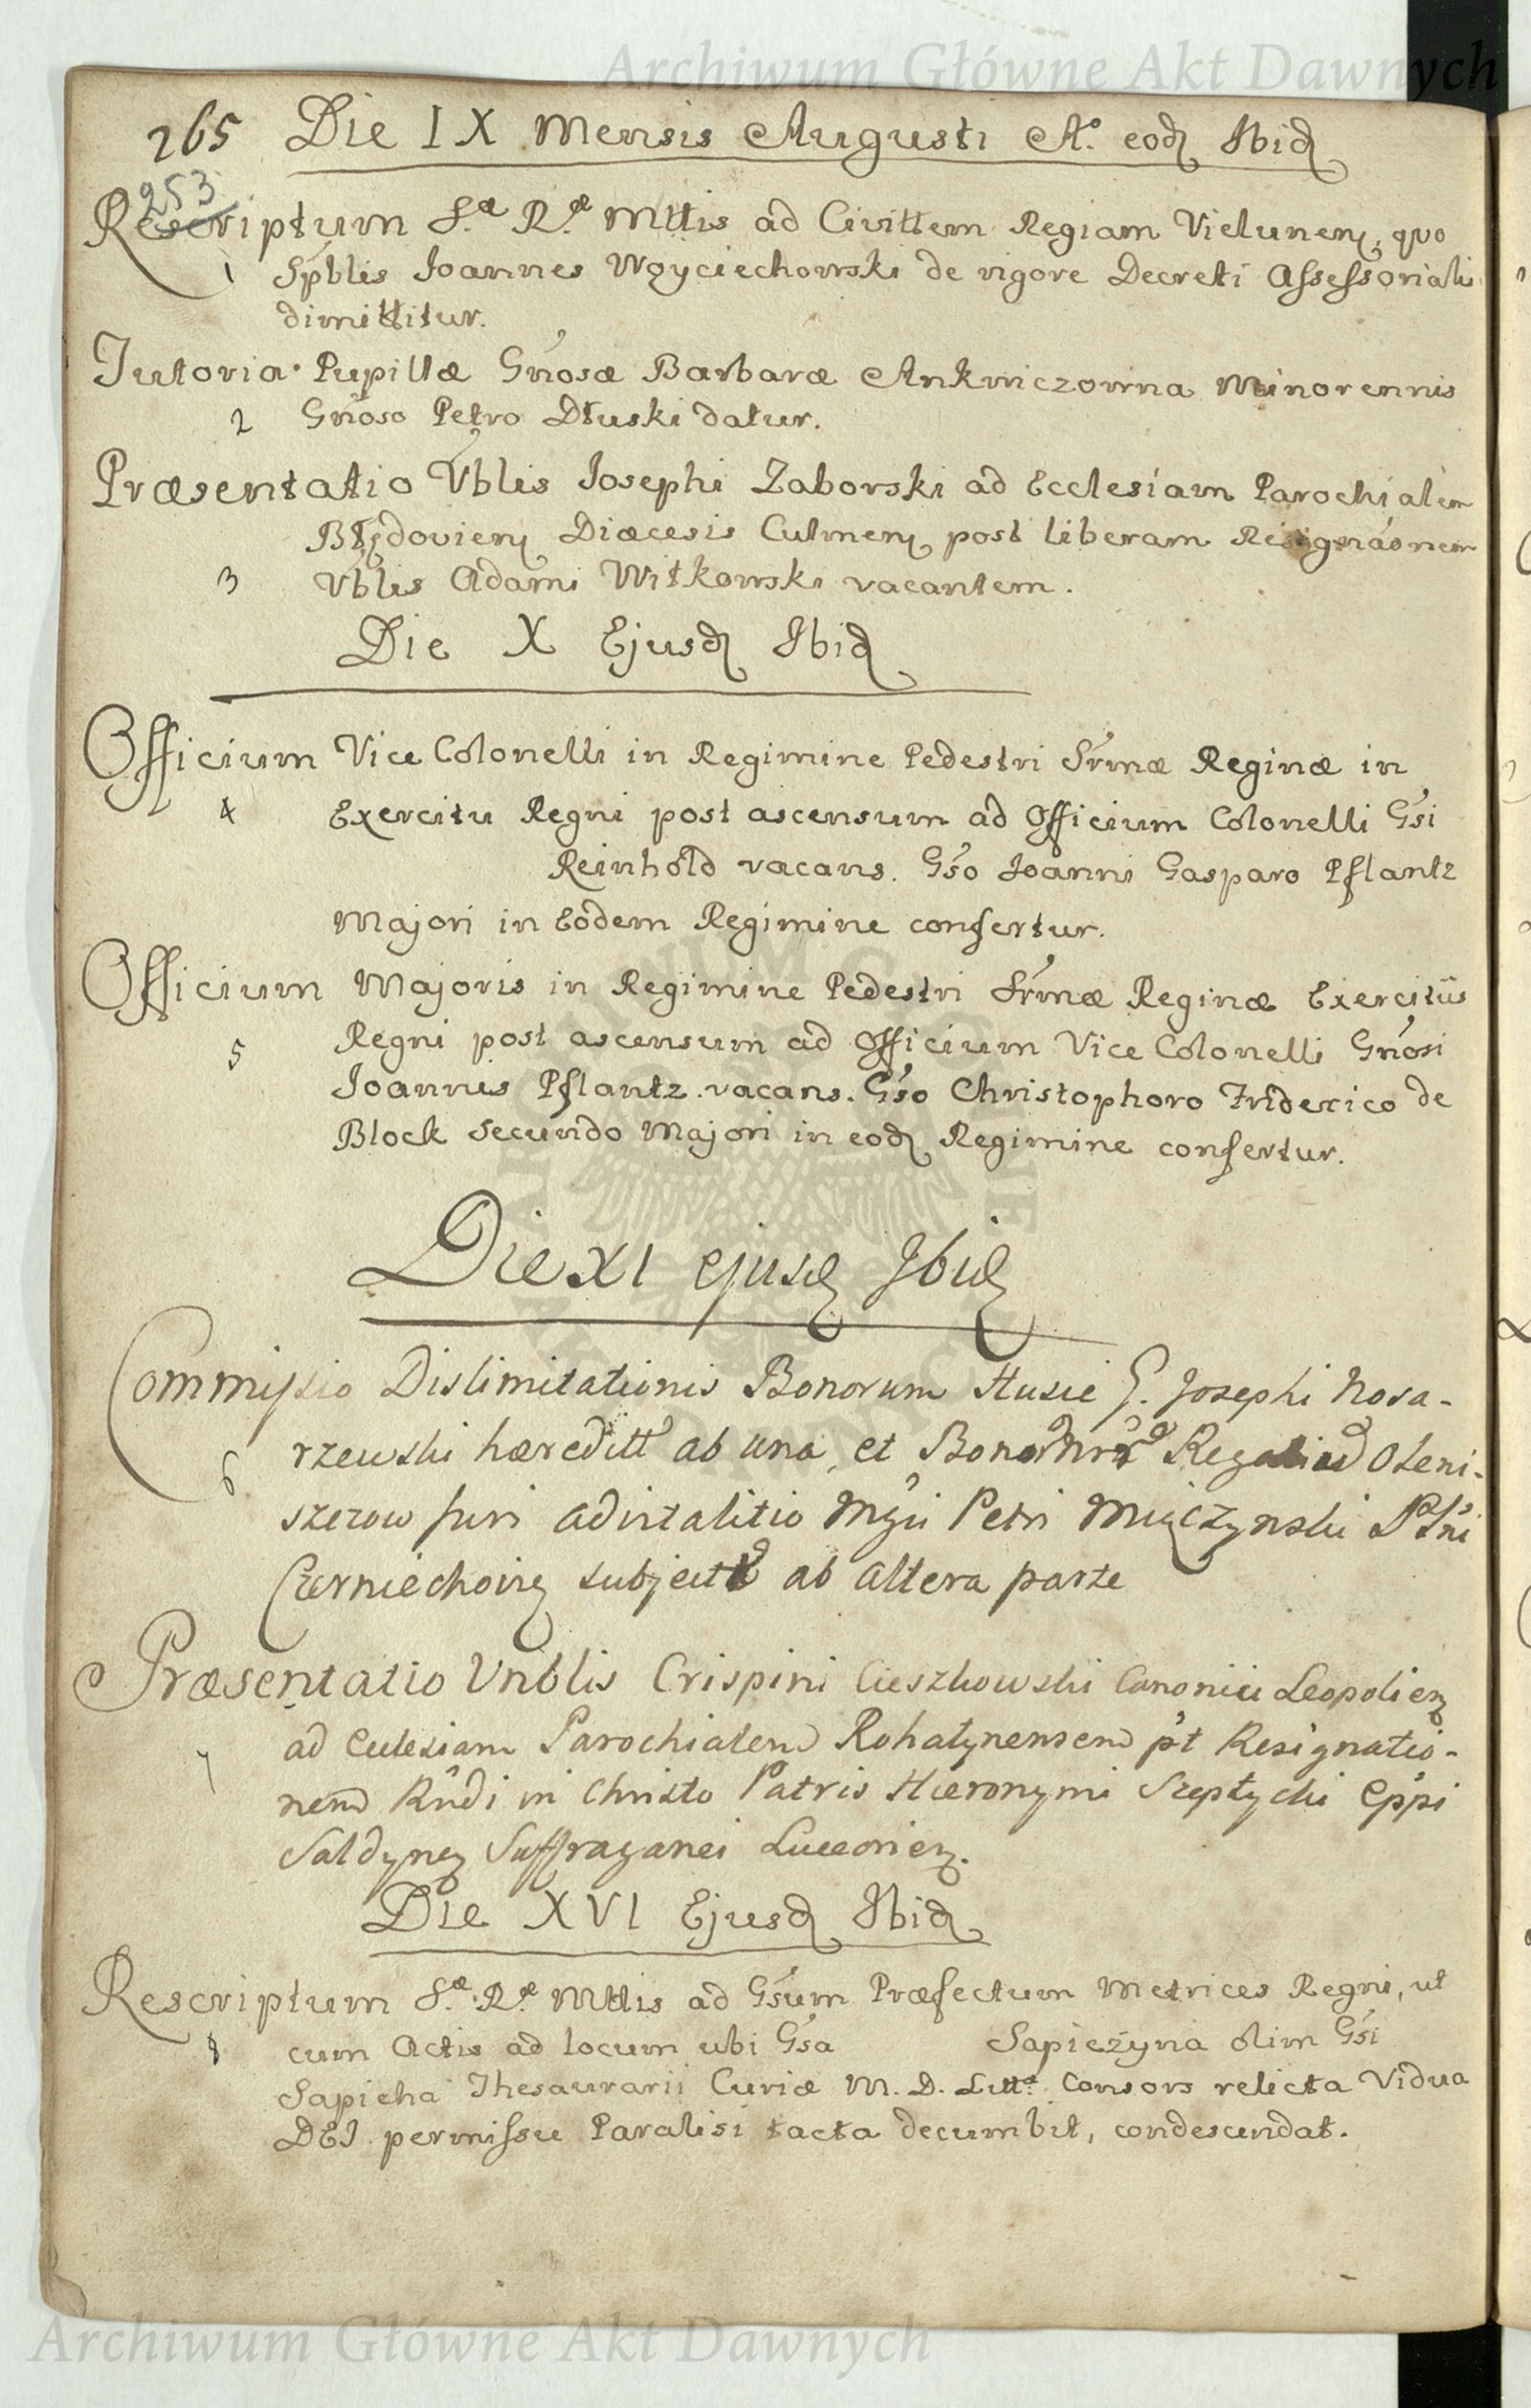 Archiwum Główne Akt Dawnych
265 Die IX Mensis Augusti Aº. eod Ibid
253
Rescriptum S.æ R.æ Mttis ad Civittem Regiam Vielunen, quo
1 Spblis Joannes Woyciechowski de vigore Decreti Assessorialis
dimittitur.
Tutoria Pupillæ Gnosæ Barbaræ Ankwiczowna Minorennis
2 Gnoso Petro Dłuski datur.
Præsentatio Vblis Josephi Zaborski ad Ecclesiam Parochialem
Błędovien Diæcesis Culmen post liberam Resignaonem
3 Vblis Adami Witkowski vacantem.
Die X Ejusd Ibid
Officium Vice Colonelli in Regimine Pedestri Srmæ Reginæ in
4 Exercitu Regni post ascensum ad Officium Colonelli Gsi
Reinhold vacans. Gso Joanni Gasparo Pflantz
Majori in Eodem Regimine confertur.
Officium Majoris in Regimine Pedestri Srmæ Reginæ Exercitûs
5 Regni post ascensum ad Officium Vice Colonelli Gnosi
Joannis Pflantz vacans. Gso Christophoro Friderico de
Block secundo Majori in eod Regimine confertur.
Die XI ejusd Ibid
Commissio Dislimitationis Bonorum Husie G. Josephi Nosa-
6 rzewski hæreditt ab una, et Bonor Regaliu Oleni-
szczow Juri advitalitio Mgci Petri Miączynski Pltni
Czerniechovien subject ab altera parte
Præsentatio Vnblis Crispini Cieszkowski Canonici Leopolien
7 ad Eclesiam Parochialem Rohatynensem pt Resignatio-
nem Rndi in Christo Patris Hieronymi Szeptycki Eppi
Saldynen Suffraganei Luceorien.
Die XVI Ejusd Ibid
Rescriptum S.æ R.æ Mttis ad Gsum Præfectum Metrices Regni, ut
8 cum Actis ad locum ubi Gsa Sapiežyna olim Gsi
Sapieha Thesaurarii Curiæ M. D. Litt. Consors relicta Vidua
DEI permissu Paralisi tacta decumbit, condescendat.
Archiwum Główne Akt Dawnych